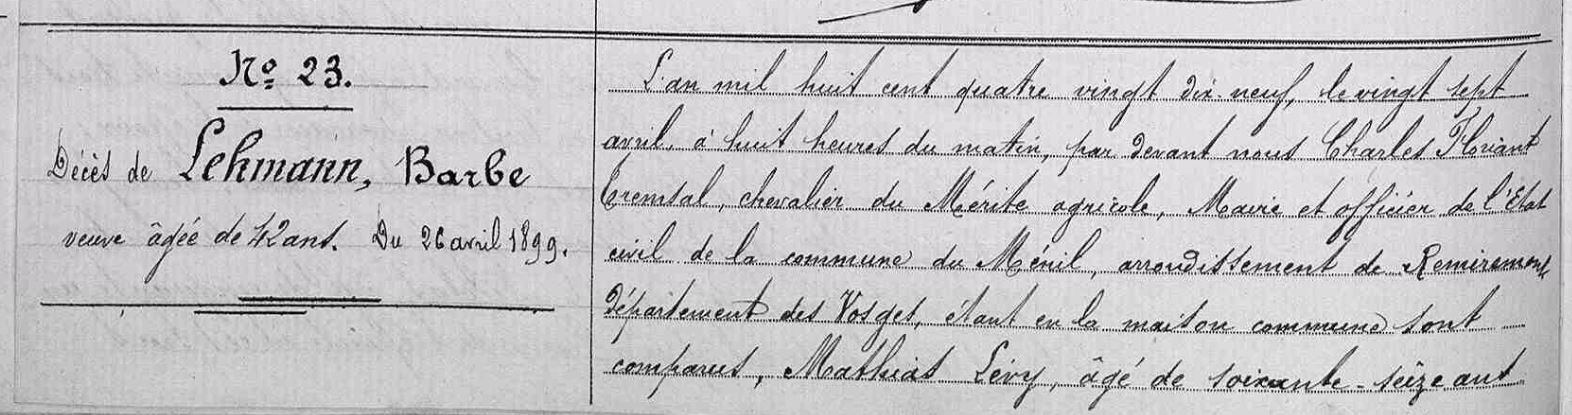 No 23.
Décès de Lehmann, Barbe
veuve âgée de 42 ans. Du 26 avril 1899.
L'an mil huit cent quatre vingt dix-neuf, le vingt sept
avril, à huit heures du matin, par devant nous Charles Floriant
Tremsal, chevalier du Mérite agricole, Maire et officier de l'Etat
civil de la commune du Ménil, arrondissement de Remiremont,
département des Vosges, étant en la maison commune sont
comparus, Mathias Lévy, âgé de soixante-seize ans